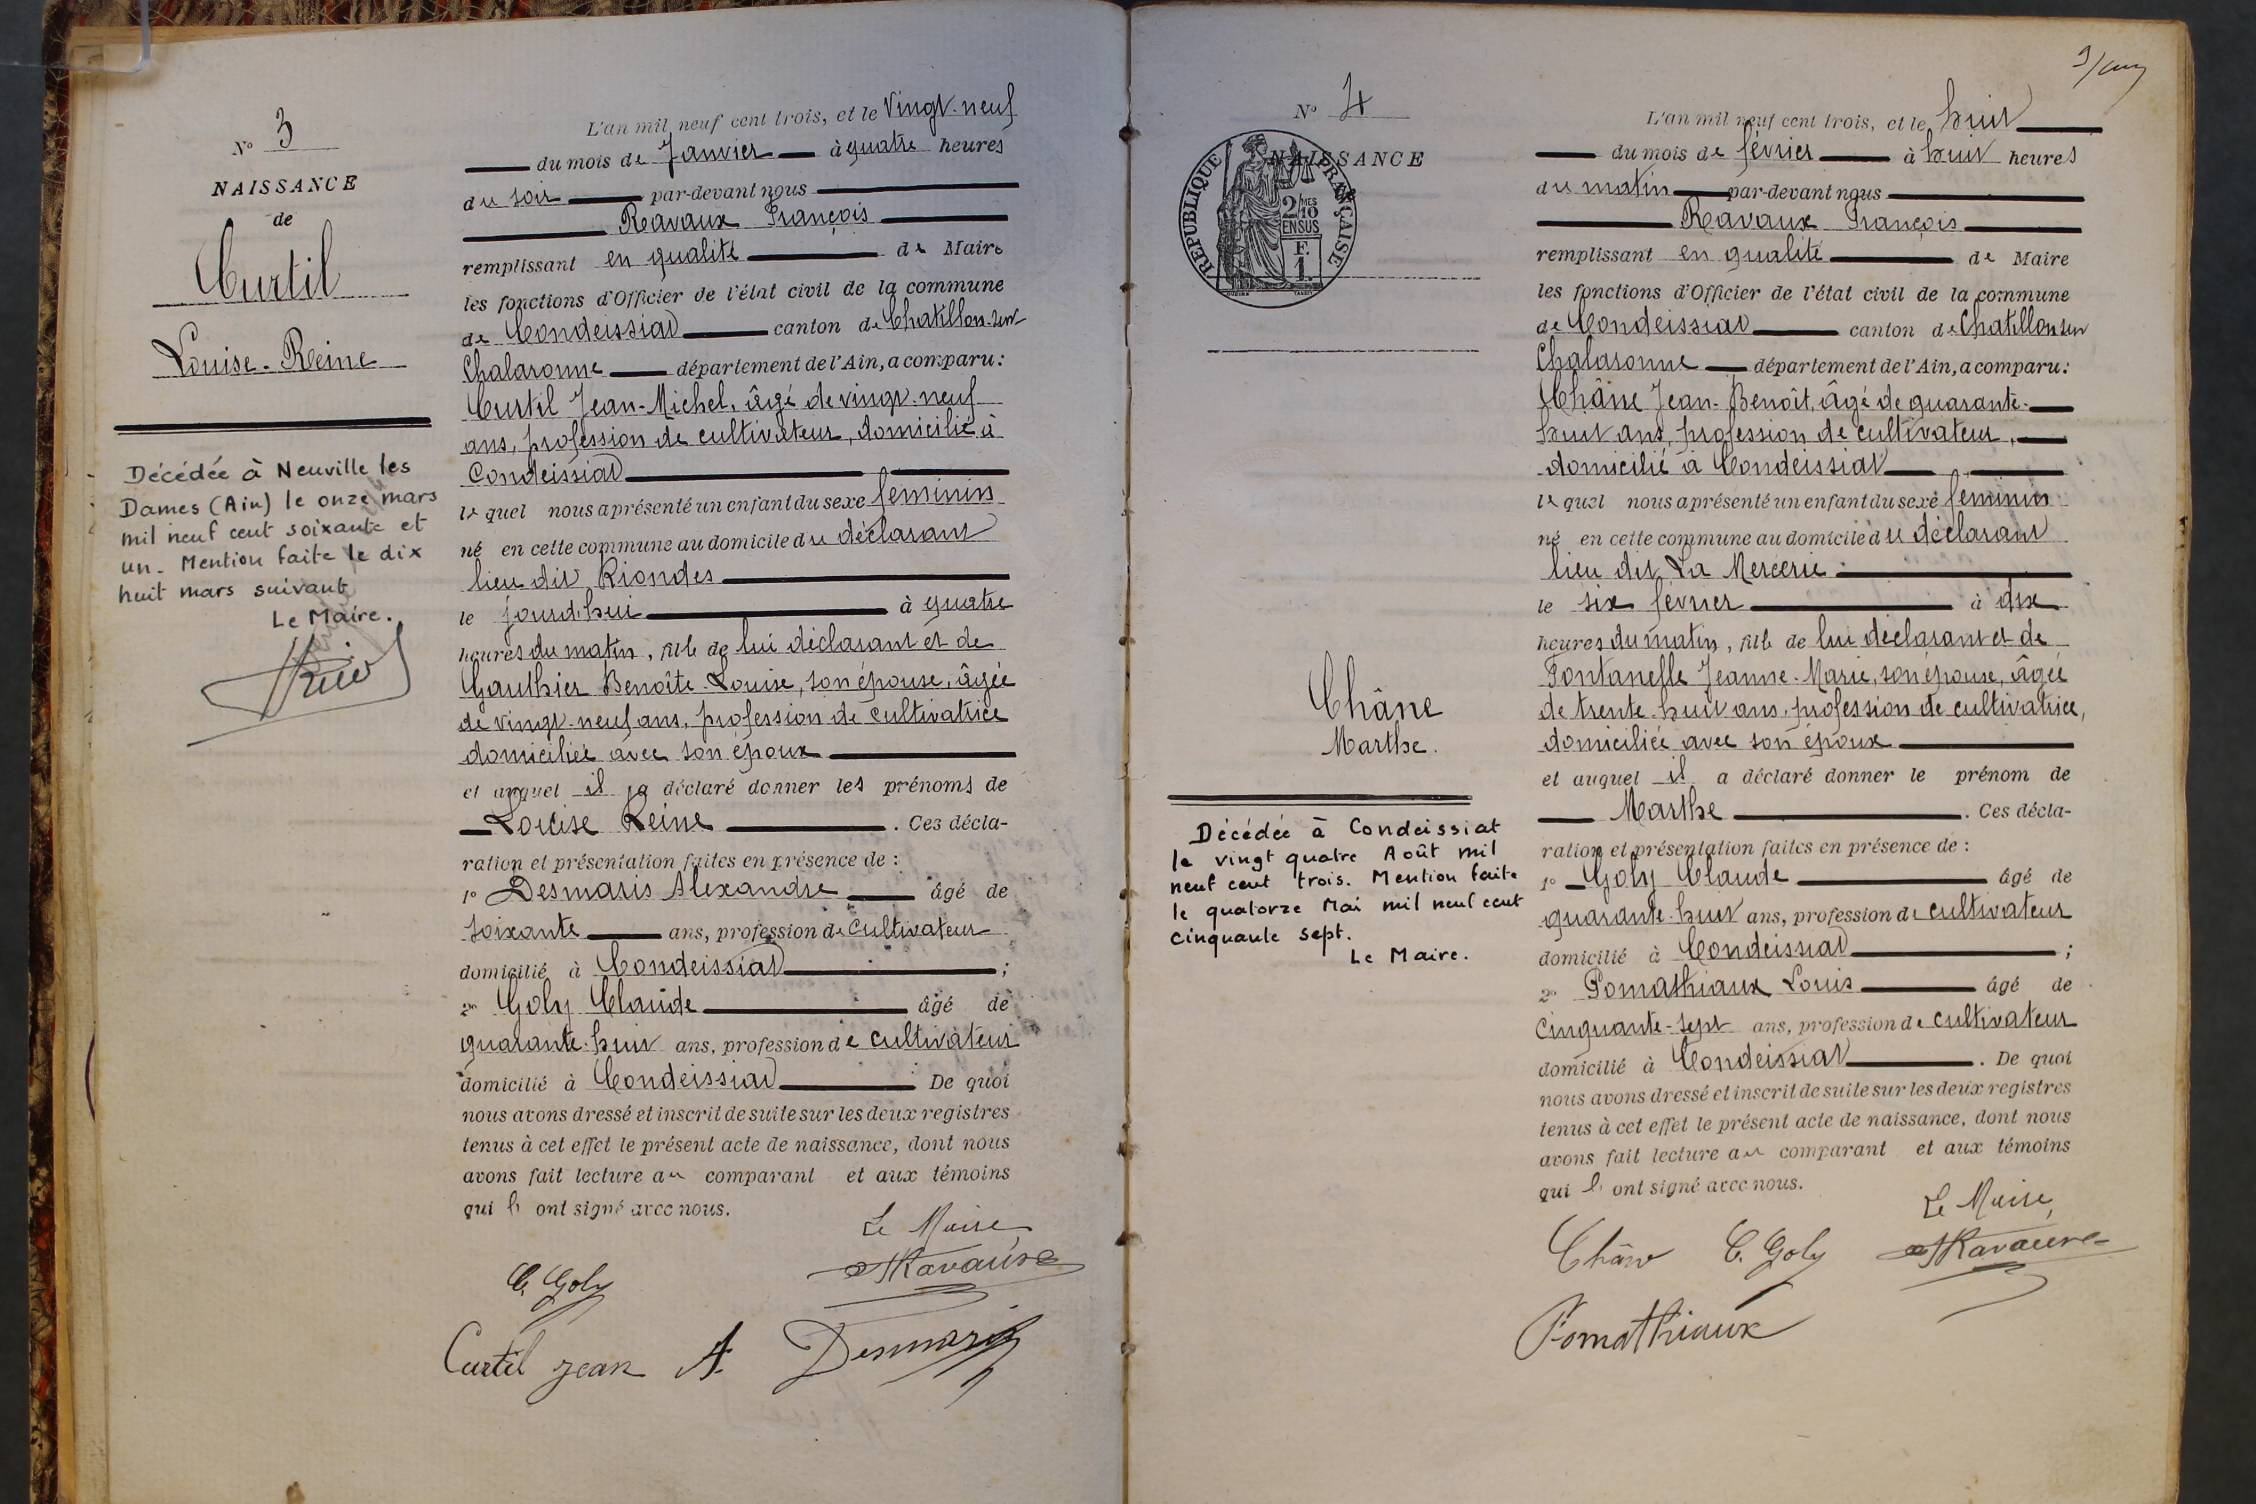 N° 3
NAISSANCE
de
Curtil
Louise-Reine
Décédée à Neuville les
Dames (Ain) le onze mars
mil neuf cent soixante et
un. Mention faite le dix
huit mars suivant
Le Maire.
L'an mil neuf cent trois, et le Vingt-neuf
du mois de Janvier à quatre heures
du soir par-devant nous
Ravaux François
remplissant en qualité de Maire
les fonctions d'Officier de l'état civil de la commune
de Condeissiat canton de Chatillon-sur
Chalaronne département de l'Ain, a comparu:
Curtil Jean-Michel, âgé de vingt-neuf
ans, profession de cultivateur, domicilié à
Condeissiat
lequel nous a présenté un enfant du sexe féminin
né en cette commune au domicile du déclarant
lieu dit Riondes
le jourd'hui à quatre
heures du matin, fille de lui déclarant et de
Gauthier Benoîte-Louise, son épouse, âgée
de vingt-neuf ans, profession de cultivatrice
domiciliée avec son époux
et auquel il a déclaré donner les prénoms de
Louise Reine . Ces décla-
ration et présentation faites en présence de :
1° Desmaris Alexandre âgé de
soixante ans, profession de cultivateur
domicilié à Condeissiat ;
2° Goly Claude âgé de
quarante-huit ans, profession de cultivateur
domicilié à Condeissiat De quoi
nous avons dressé et inscrit de suite sur les deux registres
tenus à cet effet le présent acte de naissance, dont nous
avons fait lecture au comparant et aux témoins
qui l' ont signé avec nous.
Le Maire
C. Goly Ravaux
Curtil Jean A. Desmaris
N° 4
NAISSANCE
RÉPUBLIQUE FRANÇAISE
2/10 MES
EN SUS
F.
1.
Châne
Marthe.
Décédée à Condeissiat
le vingt quatre Août mil
neuf cent trois. Mention faite
le quatorze Mai mil neuf cent
cinquante sept.
Le Maire.
L'an mil neuf cent trois, et le huit
du mois de février à huit heures
du matin par-devant nous
Ravaux François
remplissant en qualité de Maire
les fonctions d'Officier de l'état civil de la commune
de Condeissiat canton de Chatillon sur
Chalaronne département de l'Ain, a comparu:
Châne Jean-Benoît, âgé de quarante-
huit ans, profession de cultivateur,
domicilié à Condeissiat
lequel nous a présenté un enfant du sexe féminin
né en cette commune au domicile du déclarant
lieu dit La Mercerie
le six février à dix
heures du matin, fille de lui déclarant et de
Fontanelle Jeanne-Marie, son épouse, âgée
de trente-huit ans, profession de cultivatrice,
domiciliée avec son époux
et auquel il a déclaré donner le prénom de
Marthe . Ces décla-
ration et présentation faites en présence de :
1° Goly Claude âgé de
quarante-huit ans, profession de cultivateur
domicilié à Condeissiat ;
2° Pomathiaux Louis âgé de
Cinquante-sept ans, profession de cultivateur
domicilié à Condeissiat . De quoi
nous avons dressé et inscrit de suite sur les deux registres
tenus à cet effet le présent acte de naissance, dont nous
avons fait lecture au comparant et aux témoins
qui l' ont signé avec nous.
Le Maire,
Châne C. Goly Ravaux
Pomathiaux